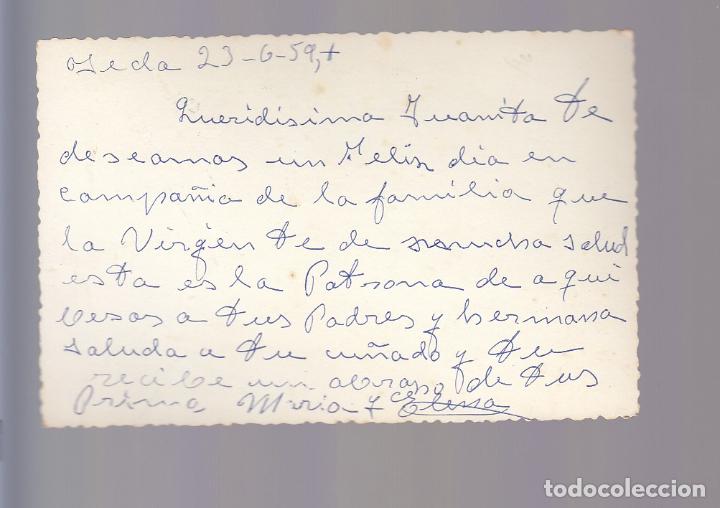 23-6-59,+
Queridisima Juanita te
deseamos un Feliz dia en
compañia de la familia que
la Virgen te de mucha salud
esta es la Patrona de aqui
besos a tus Padres y hermana
saluda a tu cuñado y tu
recibe un abrazo de tus
Primas Maria y
todocoleccion.net